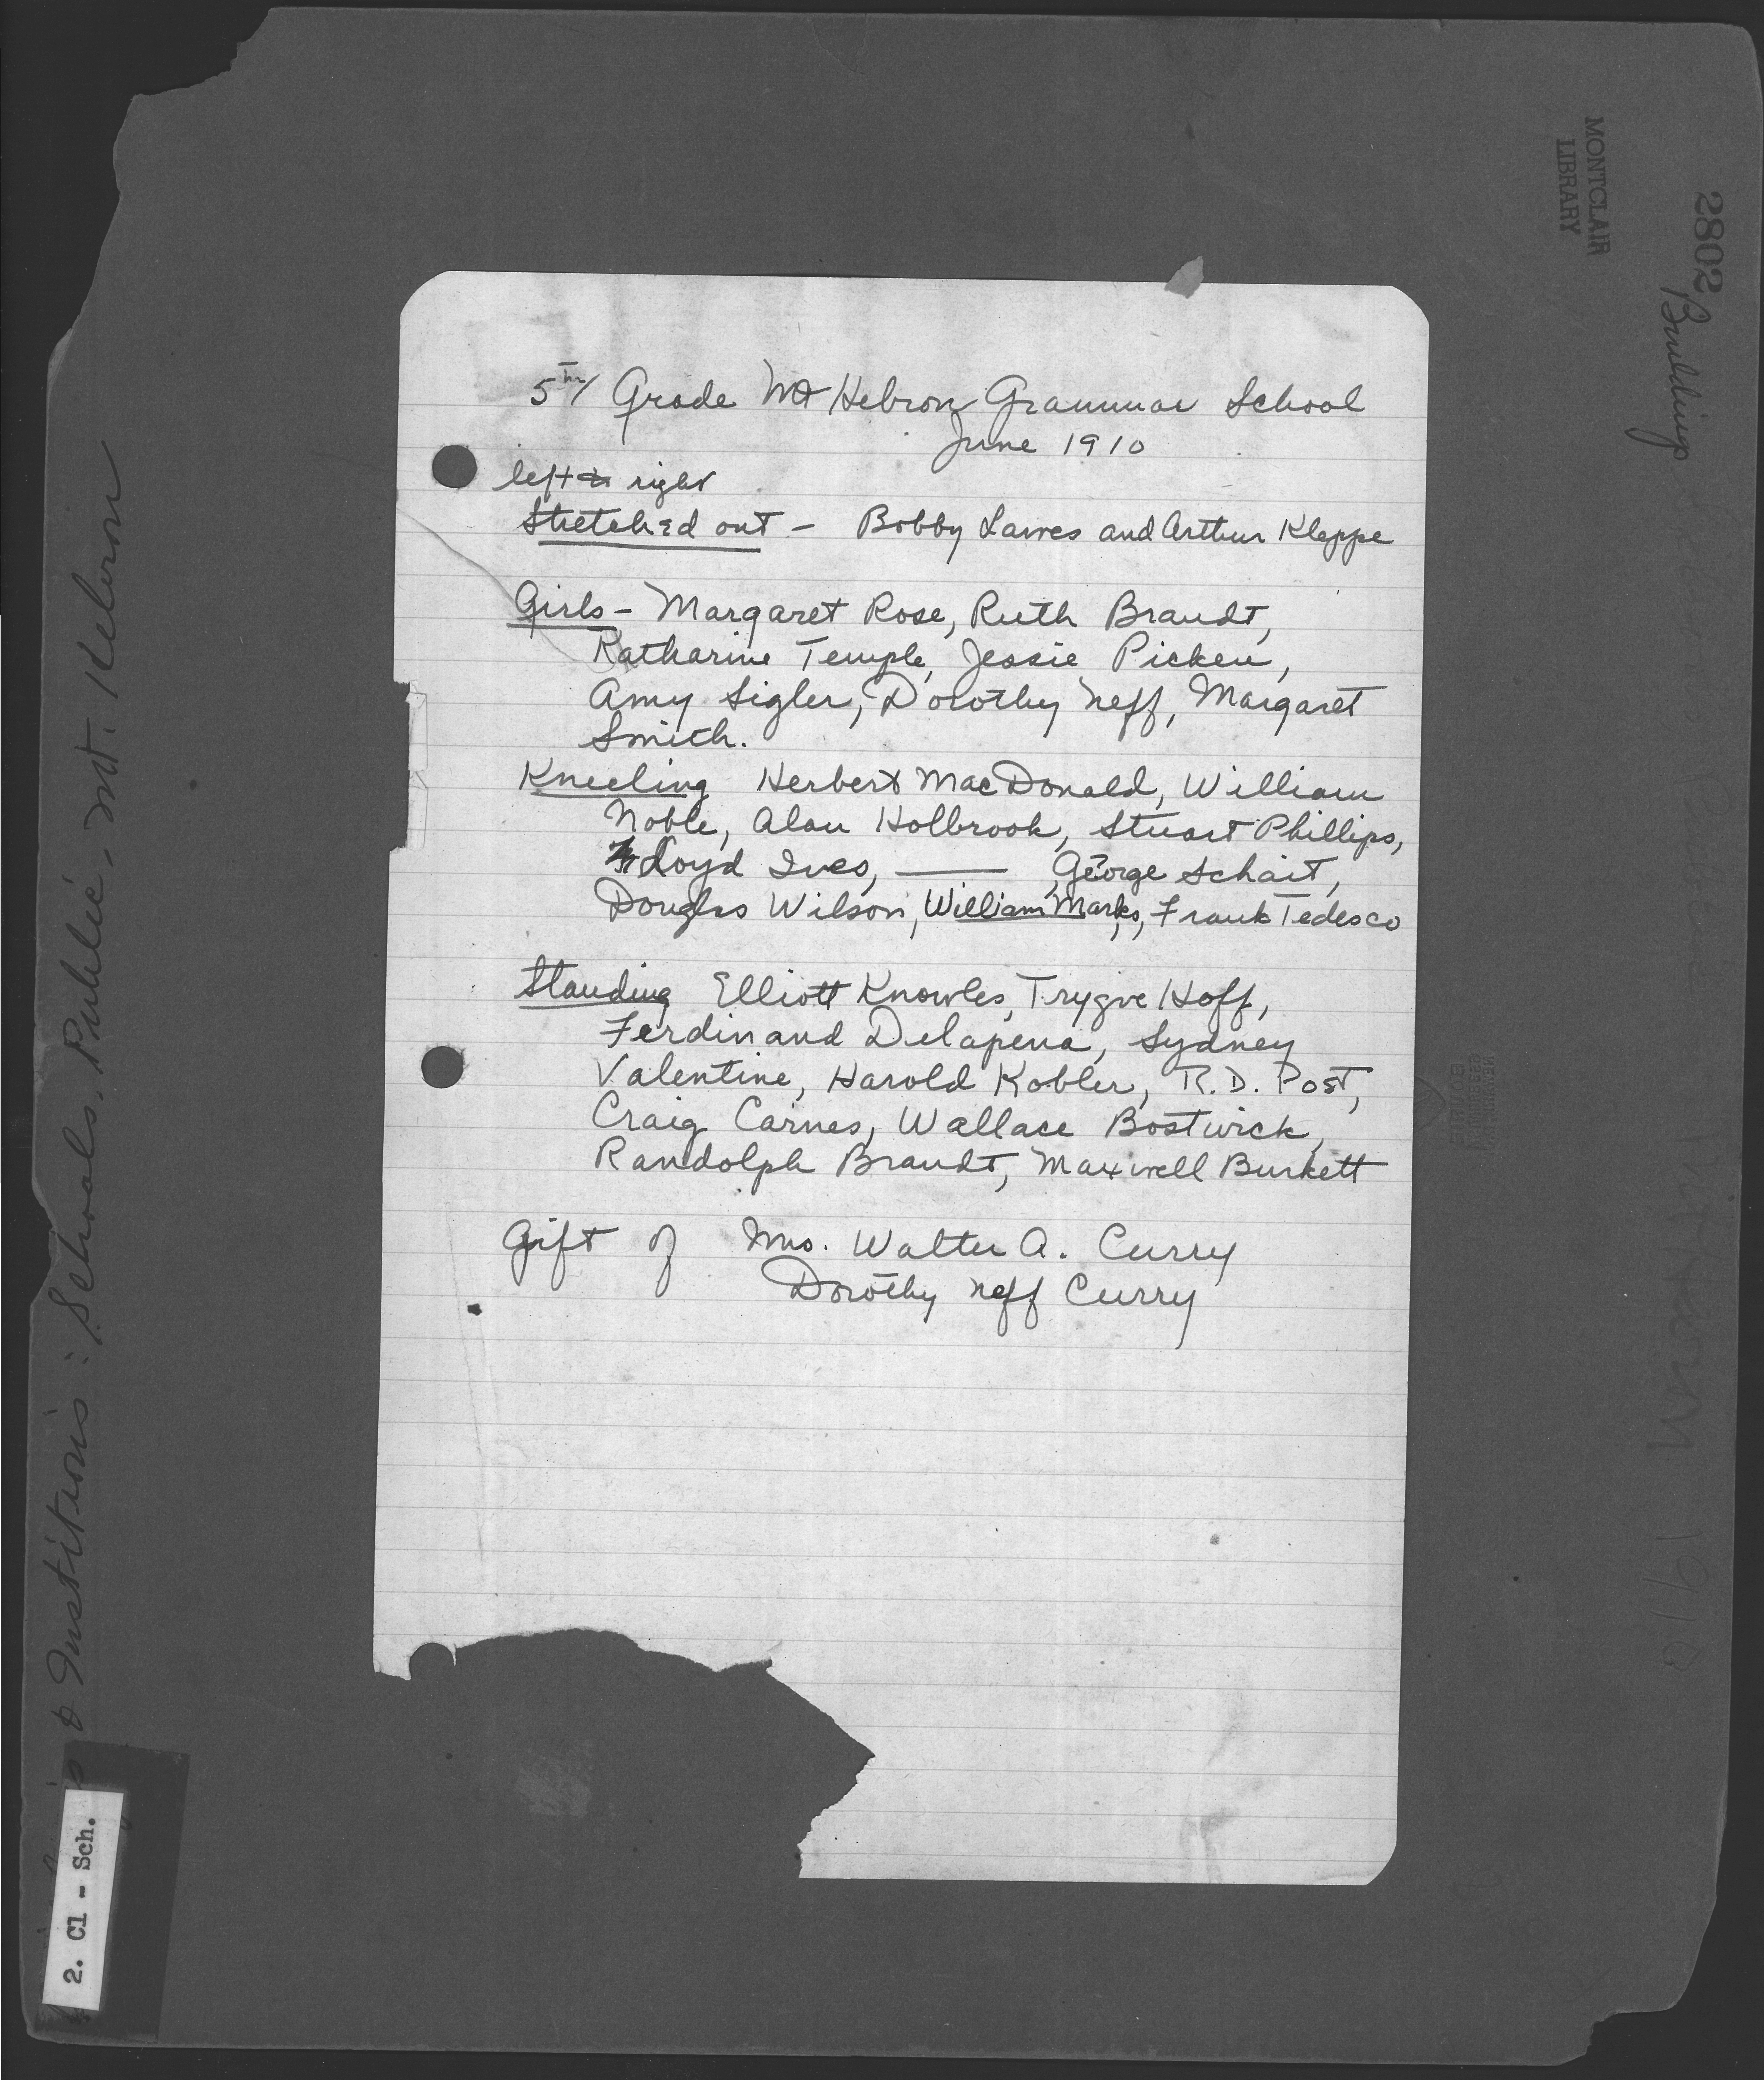 5th Grade Mt Hebron Grammar School
June 1910
left to right
Stretched out - Bobby Lawes and Arthur Kleppe
Girls - Margaret Rose, Ruth Brandt,
Katharine Temple, Jessie Picken,
Amy Sigler, Dorothy Neff, Margaret
Smith.
Kneeling Herbert MacDonald, William
Noble, Alan Holbrook, Stuart Phillips,
Lloyd Ives, —— , George Schait,
Douglas Wilson, William Marks, Frank Tedesco
Standing Elliott Knowles, Trygve Hoff,
Ferdinand Delapena, Sydney
Valentine, Harold Kobler, R.D. Post,
Craig Carnes, Wallace Bostwick,
Randolph Brandt, Maxwell Burkett
Gift of Mrs. Walter A. Curry
Dorothy Neff Curry
MONTCLAIR
LIBRARY
2802
Buildings
& Institutions: Schools, Public - Mt. Hebron
2. Cl - Sch.
1910